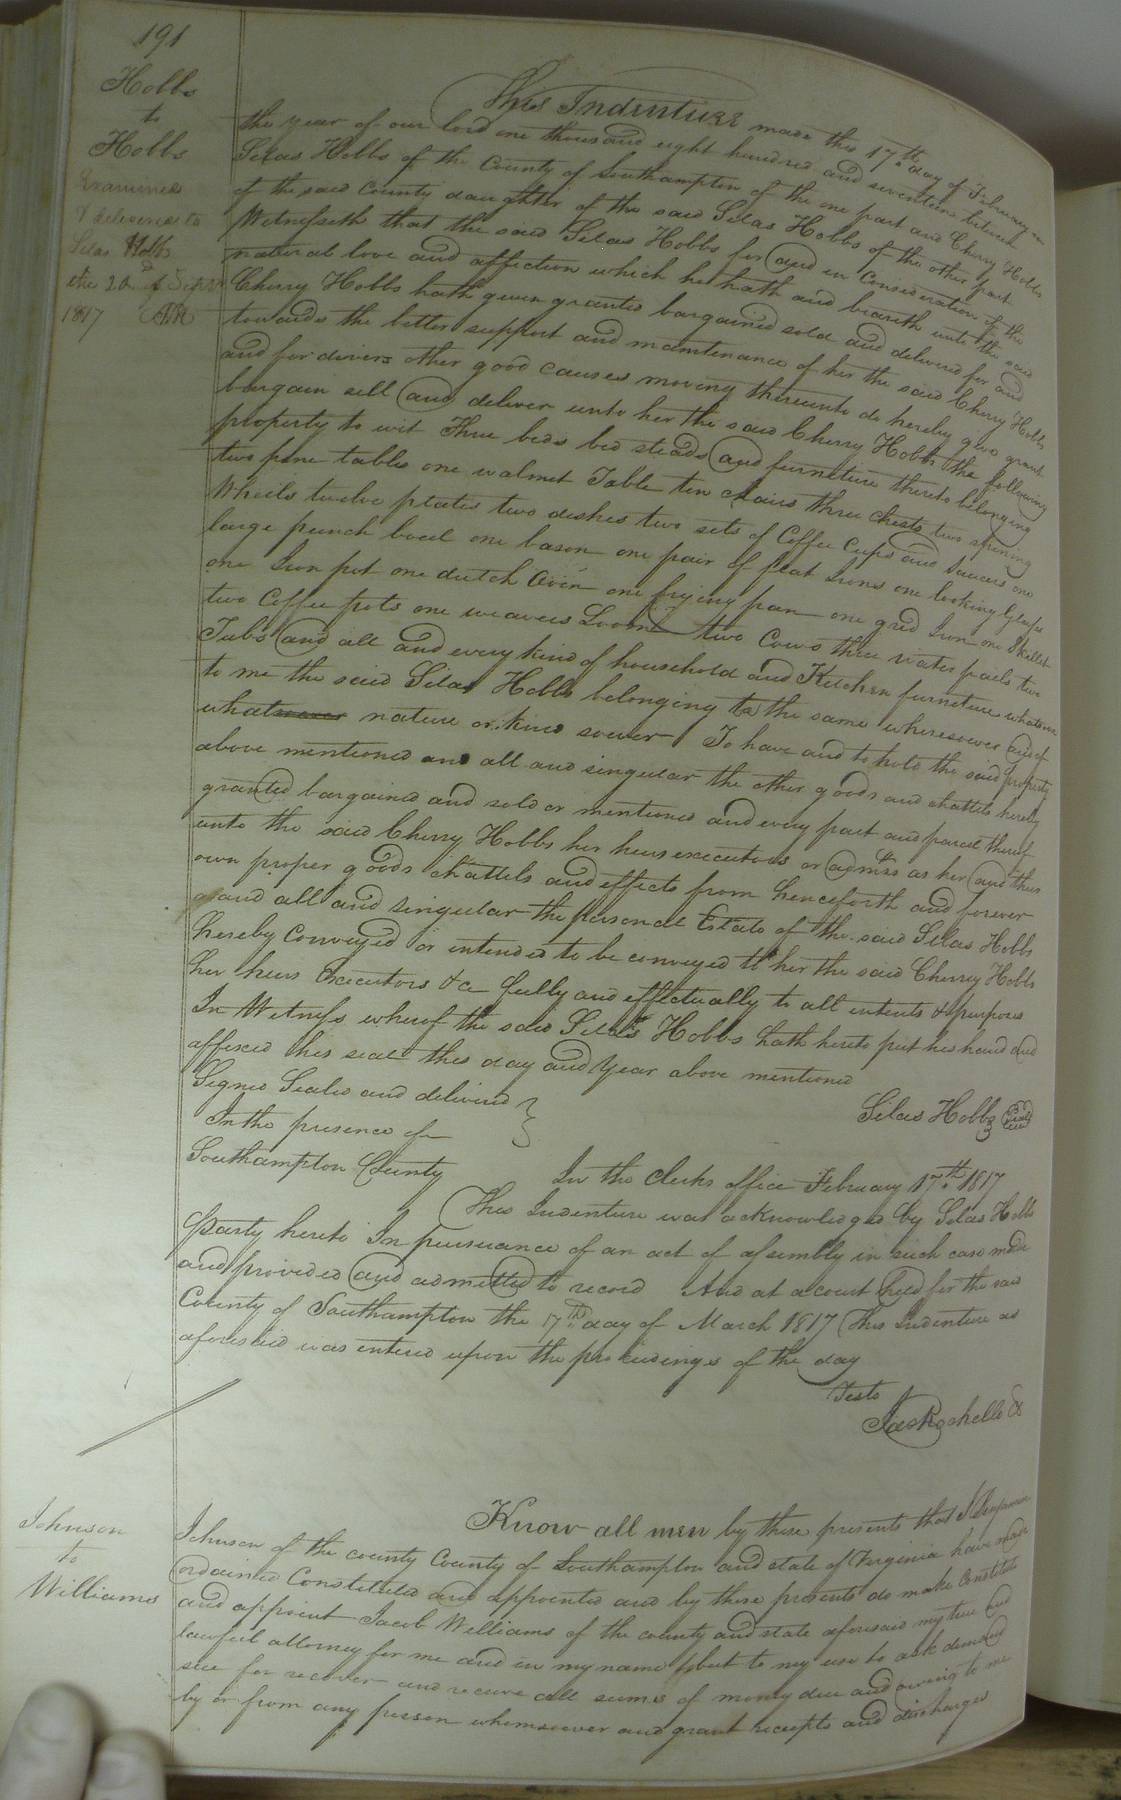 191
Hobbs
to
Hobbs
Examined
& delivered to
Silas Hobbs
the 20 of Sept
1817
This Indenture made this 17th day of February in
the year of our lord one thousand eight hundred and seventeen between
Silas Hobbs of the County of Southampton of the one part and Cherry Hobbs
of the said County daughter of the said Silas Hobbs of the other part
Witnesseth that the said Silas Hobbs for and in Consideration of the
natural love and affection which he hath and beareth unto the said
Cherry Hobbs hath given granted bargained sold and delivered for and
towards the better support and maintenance of her the said Cherry Hobbs
and for divers other good causes moving thereunto do hereby give grant
bargain sell and deliver unto her the said Cherry Hobbs the following
property to wit Three beds bed steads and furneture thereto belonging
two pine tables one walnut Table ten chairs three chests two spining
Wheels twelve plates two dishes two sets of Coffee Cups and Saucers one
large punch bowl one bason one pair of flat Irons one looking Glass
one Iron pot one dutch Oven one frying pan one grid Iron one Skillet
two Coffee pots one weavers Loom two Cows three water pails two
Tubs and all and every kind of household and Kitchen furneture whatever
to me the said Silas Hobbs belonging to the same wheresoever and of
whatsoever nature or kind soever To have and to hold the said property
above mentioned and all and singular the other goods and chattels hereby
granted bargained and sold or mentioned and every part and parcel thereof
unto the said Cherry Hobbs her heirs executors or admrs as her and their
own proper goods chattels and effects from henceforth and forever
and all and singular the personal Estate of the said Silas Hobbs
hereby conveyed or intended to be conveyed to her the said Cherry Hobbs
her heirs Executors &c fully and effectually to all intents & purposes
In Witness whereof the said Silas Hobbs hath hereto put his hand and
affixed his seal this day and Year above mentioned
Signed Sealed and delivered }
Silas Hobbs Seal
In the presence of
Southampton County In the Clerks office February 17th 1817
This Indenture was acknowledged by Silas Hobbs
party hereto In pursuance of an act of assembly in such case made
and provided and admitted to record And at a court held for the said
County of Southampton the 17th day of March 1817 This Indenture as
aforesaid was entered upon the proceedings of the day
Teste
Jas Rochelle
Johnson
to
Williams
Know all men by these presents that I Benjamin
Johnson of the county County of Southampton and state of Virginia have made
ordained Constituted and appointed and by these presents do make Constitute
and appoint Jacob Williams of the county and state aforesaid my true and
lawful attorney for me and in my name but to my use to ask demand
sue for recover and receive all sums of money due and owing to me
by or from any person whomsoever and grant receipts and discharges